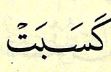 كَسَبَتۡ